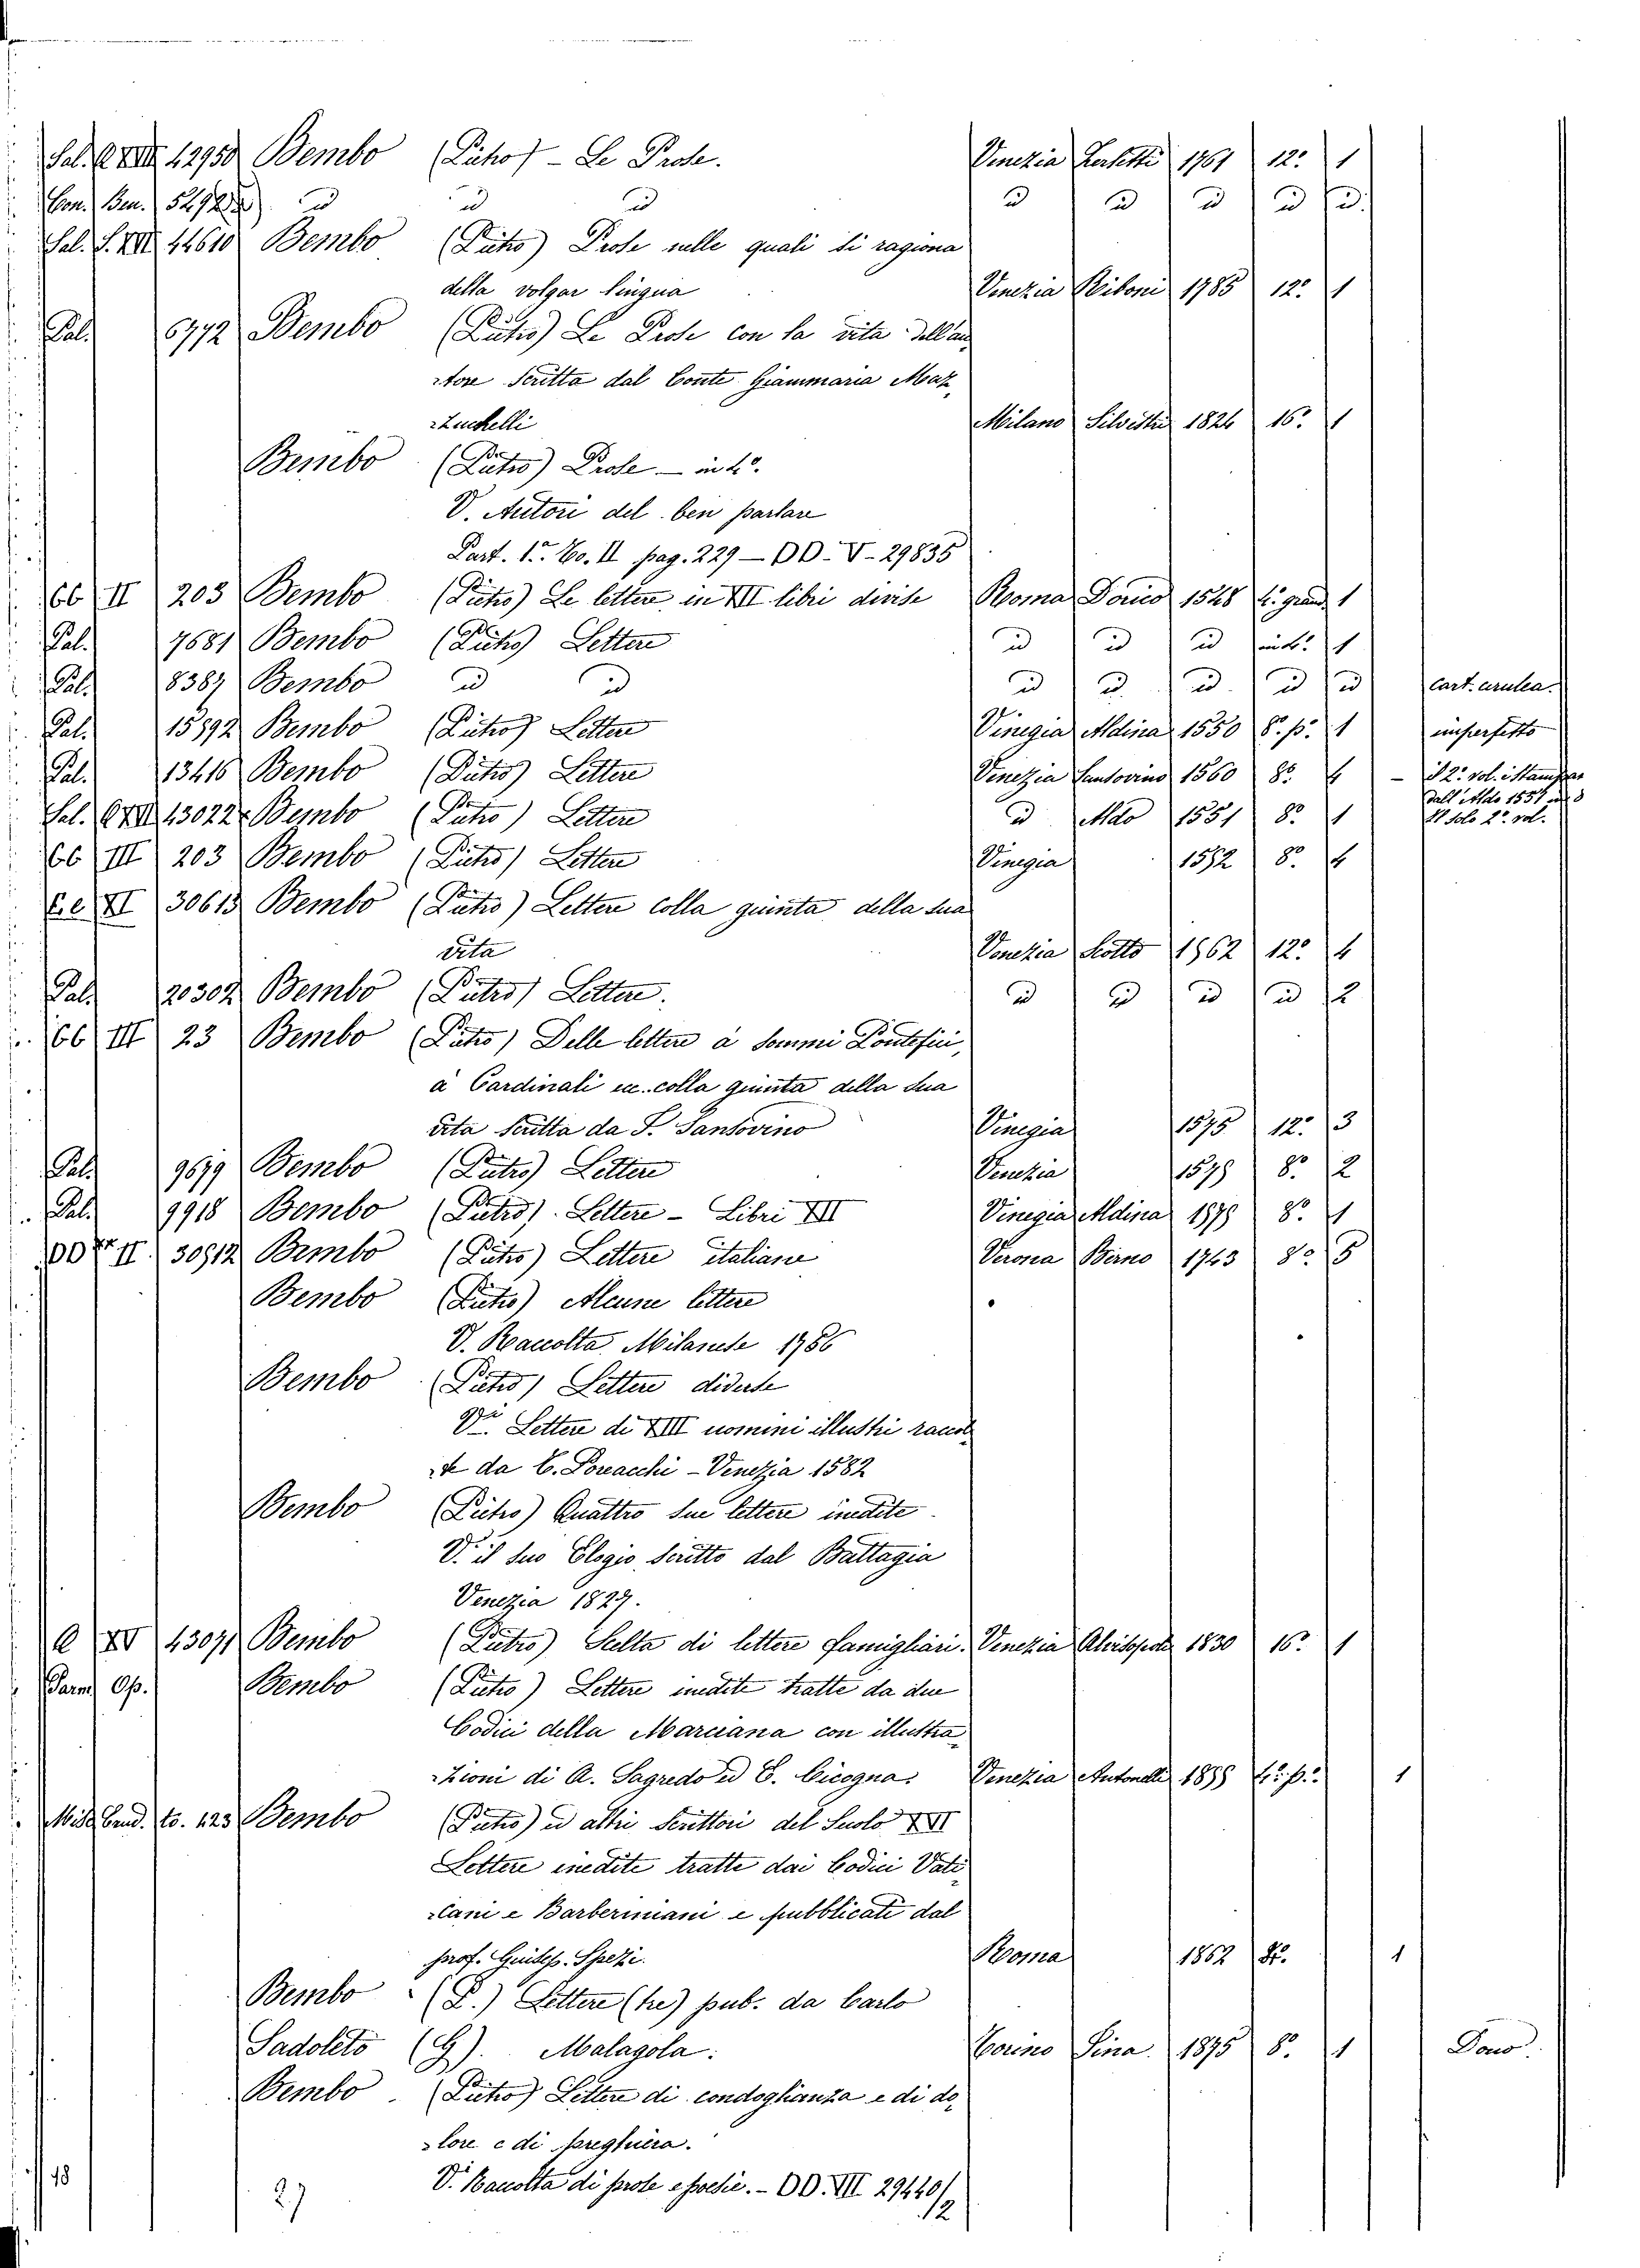 Sal. 12950 Bembo (Pietro) - Le Prose. Venezia 1761 12º 1
Con. Ben. id id id id id id id id
Sal. 44610 Bembo (Pietro) Prose sulle quali si ragiona
della volgar lingua Venezia 1785 12º 1
Pal. 6772 Bembo (Pietro) Le Prose con la vita dell'au
=tore scritta dal Conte Giammaria Maz
=zuchelli Milano Silvestri 1824 16º 1
Bembo (Pietro) Prose - in 4º.
V. Autori del ben parlare
Part. 1ª. To. II pag. 229 - DD-V-29835
bb II 203 Bembo (Pietro) Le lettere in XII libri divise Roma Dorico 1548 4º grand 1
Pal. 7681 Bembo (Pietro) Lettere id id id in 4º. 1
Pal. 8387 Bembo id id id id id id id cart. cerulea.
Pal. 15892 Bembo (Pietro) Lettere Vinegia Aldina 1550 8º. p. 1 imperfetto
Pal. 13416 Bembo (Pietro) Lettere Venezia Sansovino 1560 8º. 4 - il 2º. vol. è stampato
dall'Aldo 1551 in 8
Sal. 43022 Bembo (Pietro) Lettere id Aldo 1551 8º 1 Il solo 2º. vol.
bb III 203 Bembo (Pietro) Lettere Vinegia 1552 8º. 4
E.e XI 30613 Bembo (Pietro) Lettere colla giunta della sua
vita Venezia Scotto 1562 12º 4
Pal. 20302 Bembo (Pietro) Lettere. id id id id 2
bb III 23 Bembo (Pietro) Delle lettere a' sommi Pontefici,
a' Cardinali ec. colla giunta della sua
vita scritta da F. Sansovino Vinegia 1575 12º. 3
Pal. 9679 Bembo (Pietro) Lettere Venezia 8º. 2
Pal. 9918 Bembo (Pietro). Lettere - Libri XII Vinegia Aldina 8º. 1
II. 30912 Bembo (Pietro) Lettere italiane Verona Berno 1743 8º. 5
Bembo (Pietro) Alcune lettere
V. Raccolta Milanese 1756
Bembo (Pietro) Lettere diverse
Vi. Lettere di XIII uomini illustri raccol
=te da T. Porcacchi - Venezia 1582
Bembo (Pietro) Quattro sue lettere inedite.
V. il suo Elogio scritto dal Battagia
Venezia 1827.
XV 43071 Bembo (Pietro) Scelta di lettere famigliari. Venezia Alvisopoli 1830 16º. 1
Parm. Op. Bembo (Pietro) Lettere inedite tratte da due
Codici della Marciana con illustra
=zioni di A. Sagredo ed E. Cicogna. Venezia Antonelli 1855 1
Misc. to. 123 Bembo (Pietro) ed altri scrittori del Secolo XVI
Lettere inedite tratte dai Codici Vati
=cani e Barberiniani e pubblicate dal
prof. Giusep. Spezi. Roma 1862 8º. 1
Bembo (P.) Lettere (tre) pub. da Carlo
Sadoleto (G). Malagola. Torino 1875 8º. 1 Dono.
Bembo. (Pietro) Lettere di condoglianza e di do
=lore e di preghiera.
V. Raccolta di prose e poesie. - DD. VII 29440/
12
18
27